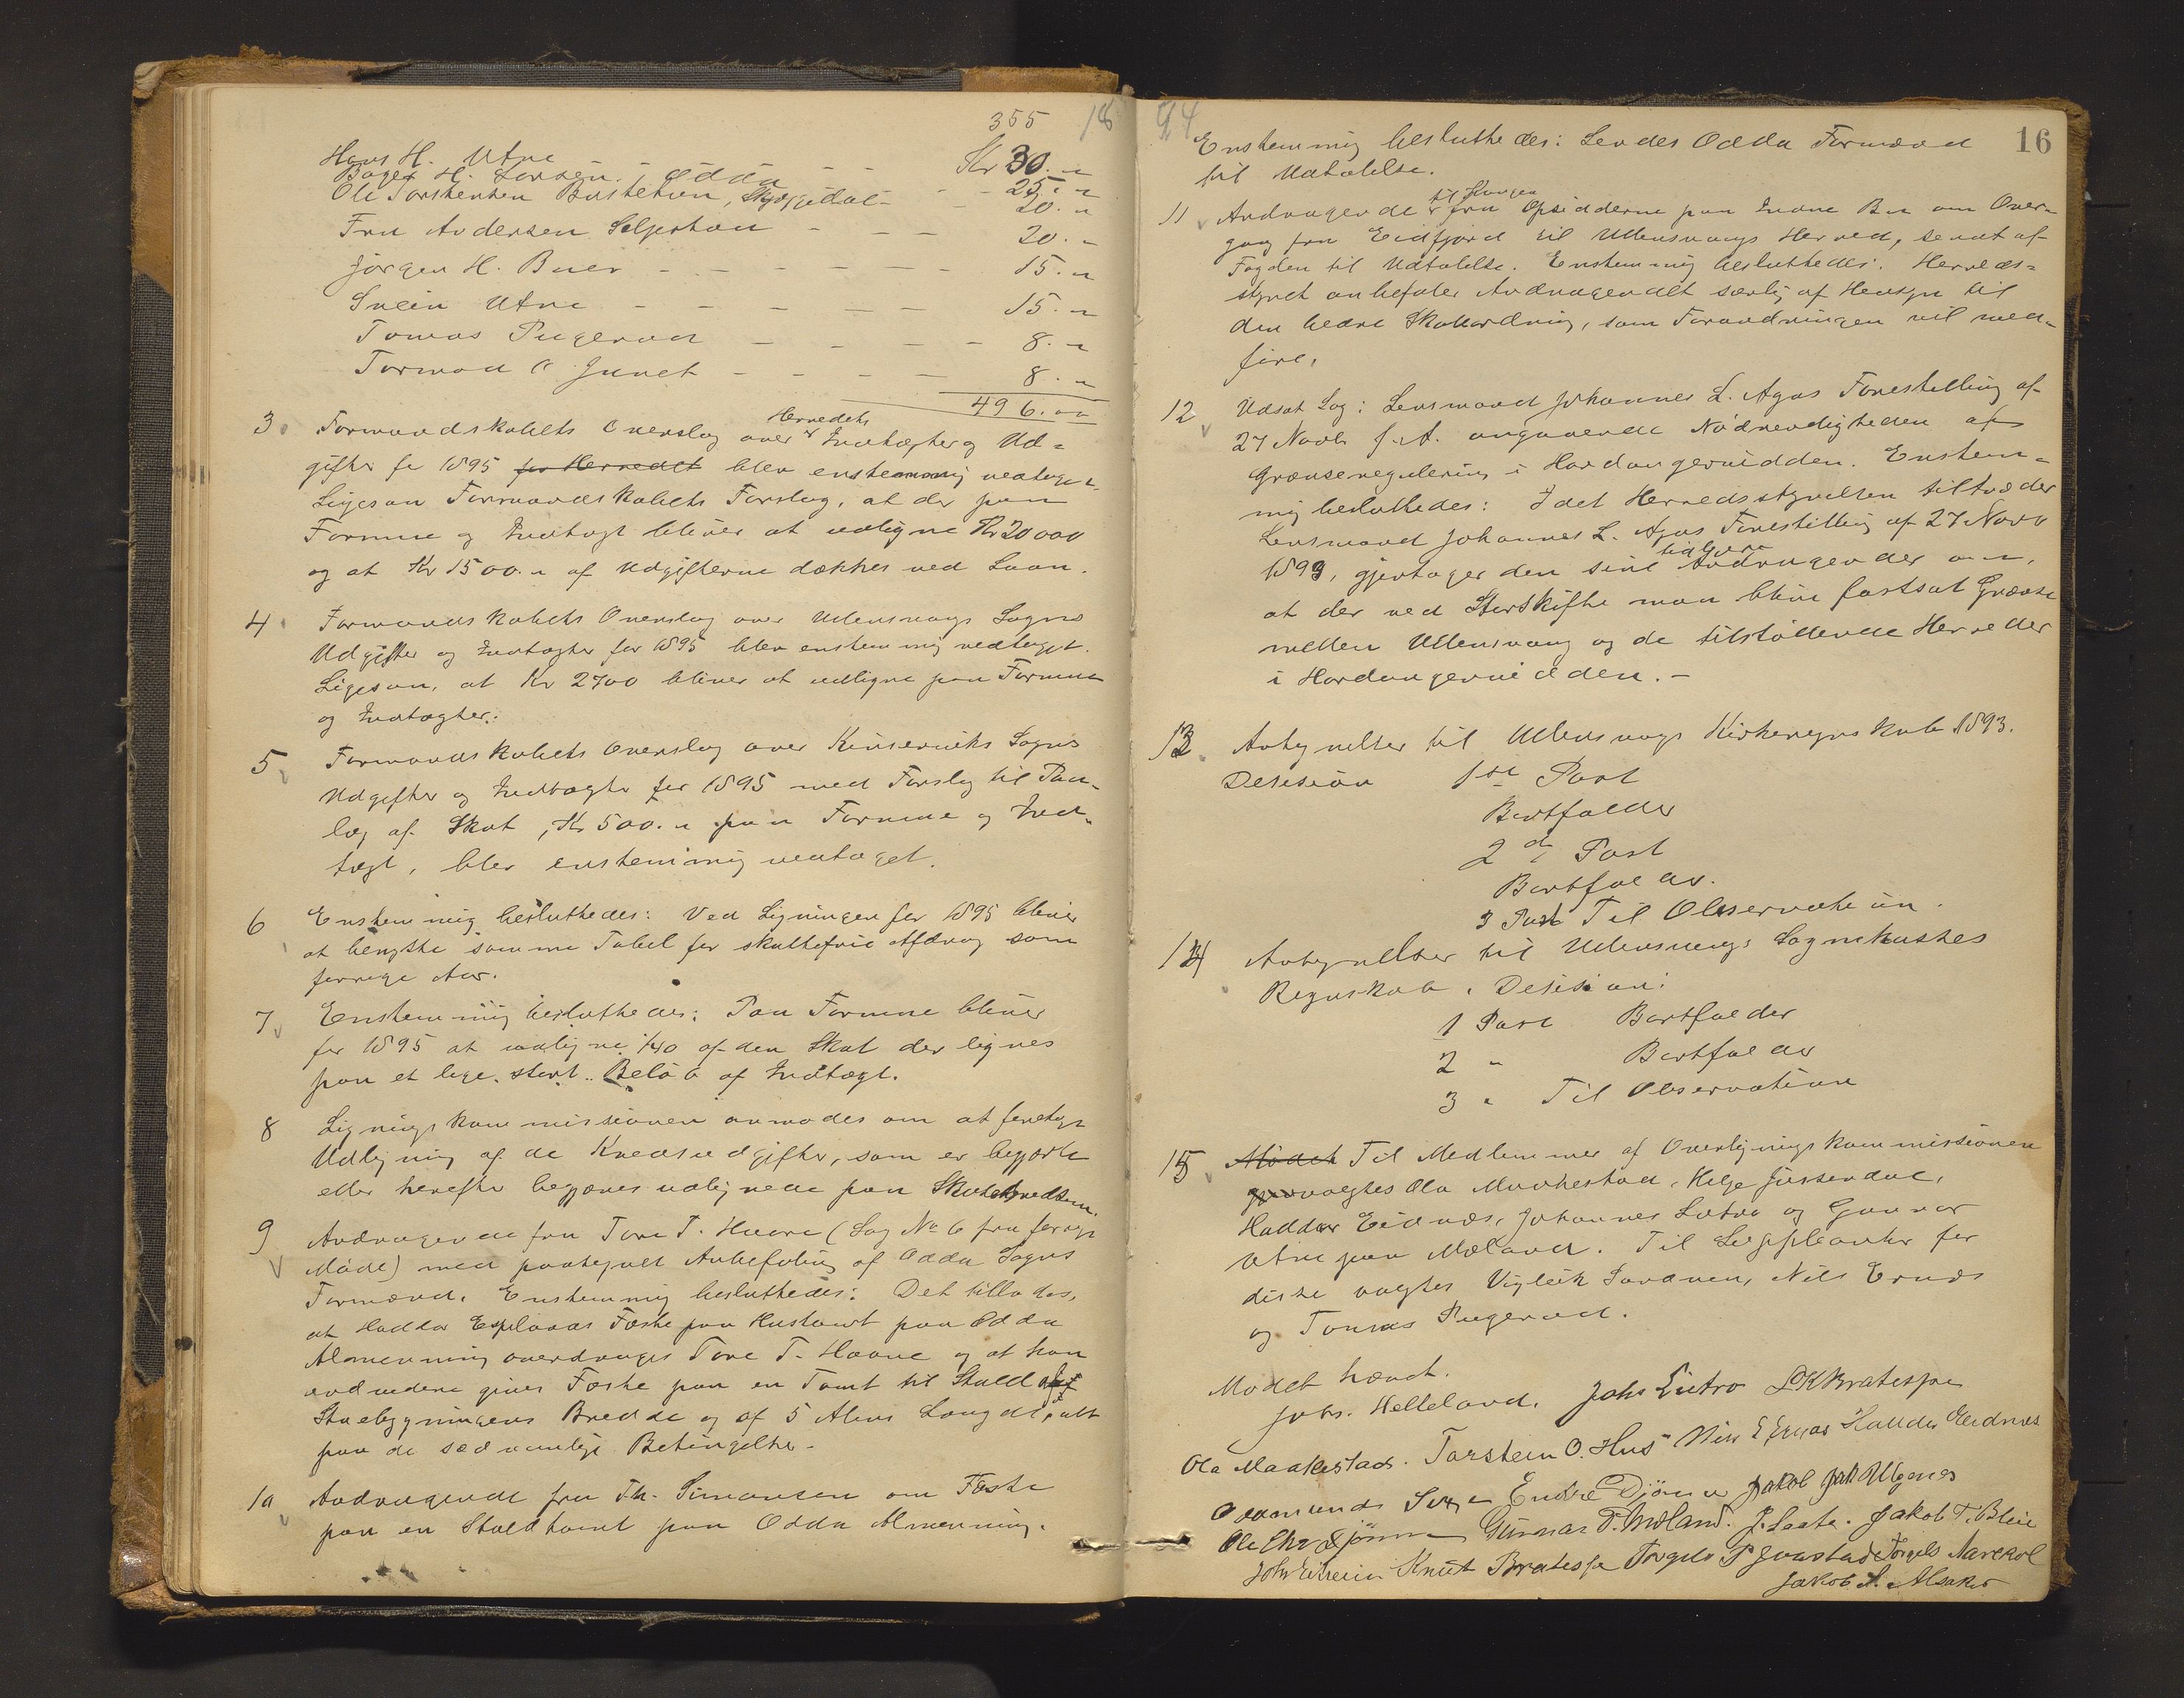 355 18
Hans H. Utne - - - Kr 30.-
Bager H. Larsen. Odda - - 25.-
Ole Torstensen Bustetun, Skjeggedal - - 20.-
Fru Andersen Seljestad - - - 20.-
Jørgen H. Buer - - - - - 15.-
Svein Utne - - - - - 15.-
Tomas Pugerud - - - - 8.-
Tormod O Junet - - - - 8.-
496.00
3. Formandskabets Overslag over Herredets Indtægter og Ud=
gifter for 1895 for Herredet blev enstemmig vedtaget.
Ligesaa Formandskabets Forslag, at der paa
Formue og Indtægt bliver at udligne Kr 20000
og at Kr 1500.- af Udgifterne dækkes ved Laan.
4. Formandskabets Overslag over Ullensvangs Sogns
Udgifter og Indtægter for 1895 blev enstemmig vedtaget.
Ligesaa, at Kr 2700 bliver at udligne paa Formue
og Indtægter.
5 Formandskabets Overslag over Kinserviks Sogns
Udgifter og Indtægter for 1895 med Forslag til Paa-
læg af Skat, Kr 500.- paa Formue og Ind-
tægt, blev enstemmig vedtaget.
6 Enstemmig besluttedes: Ved Ligningen for 1895 bliver
at benytte samme Tabel for skattefrie Afdrag som
forrige Aar.
7 Enstemmig besluttedes: Paa Formue bliver
for 1895 at udligne 1/40 af den Skat der lignes
paa et lige stort Beløb af Indtægt.
8 Ligningskommissionen anmodes om at foretage
Udligning af de Kredsudgifter, som er begjært
eller herefter begjæres udlignede paa Skolekredsene.
9 Andragende fra Tore T. Haave (Sag No 6 fra forrige
Møde) med paategnet Anbefaling af Odda Sogns
Formænd. Enstemmig besluttedes: Det tillades,
at Haddor Espelands Fæste paa Hustomt paa Odda
Almenning overdrages Tore T. Haave og at han
endvidere gives Fæste paa en Tomt til Stald af
Stuebygningens Bredde og af 5 Alens Længde, alt
paa de sædvanlige Betingelser.
10 Andragende fra Th. Simonsen om Fæste
paa en Staldtomt paa Odda Almenning.
94 16
Enstemmig besluttedes: Sendes Odda Formænd
til Udtalelse.
11 Andragende til Kongen fra Opsidderne paa Indre Bu om Over-
gang fra Eidfjord til Ullensvangs Herred, sendt af
Fogden til Udtalelse. Enstemmig besluttedes: Herreds=
styret anbefaler Andragendet særlig af Hensyn til
den bedre Skoleordning, som Forandringen vil med-
føre.
12 Udsat Sag: Lensmand Johannes L. Agas Forestilling af
27 Novbr f. A. angaaende Nødvendigheden af
Grænseregulering i Hardangervidden. Enstem=
mig besluttedes: Idet Herredsstyrelsen tiltræder
Lensmand Johannes L. Agas Forestilling af 27 Novbr
1893, gjentager den sine tidligere Andragender om,
at der ved Storskifte maa blive fastsat Grænse
mellem Ullensvang og de tilstødende Herreder
i Hardangervidden.-
13 Antegnelser til Ullensvangs Kirkeregnskab 1893.
Desision 1ste Post
Bortfalder
2den Post
Bortfalder.
3 Post Til Observation.
14 Antegnelser til Ullensvangs Sognekasses
Regnskab. Desision:
1 Post Bortfalder
2 " Bortfalder
3 " Til Observation
15 Mødet Til Medlemmer af Overligningskommissionen
valgtes Ola Maakestad, Helge Jøssendal,
Haddor Eidnæs, Johannes Lutro og Gunnar
Utne paa Mæland. Til Suppleanter for
disse valgtes Vigleik Jordanen, Nils Ernæs
og Tomas Pugerud.
Mødet hævet.
Johs. Helleland. Johs Lutro LKBratespe
Ola Maakestad. Torstein O. Hus Nils E Ernæs Haddor Eidnæs
Aamund Sexe Endre Djønne Jakob Jak Ulgenes
Ole Chr Djønne Gunnar T. Mæland. J. Laate. Jakob T. Bleie
Johs Eitrheim Knut Bratespe Torgels P Jaastad Torgels Aarekol
Jakob A. Alsaker